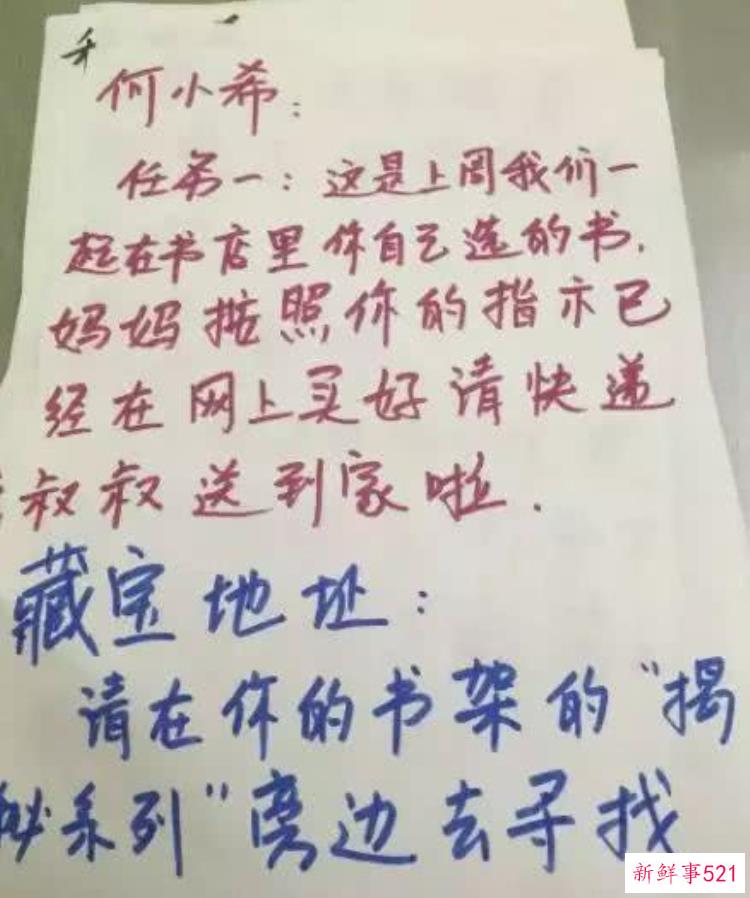 何小希：
任务一：这是上周我们一
起在书店里你自己选的书.
妈妈按照你的指示已
经在网上买好请快递
叔叔送到家啦.
藏宝地址：
请在你的书架的"揭
秘系列"旁边去寻找
新鲜事521